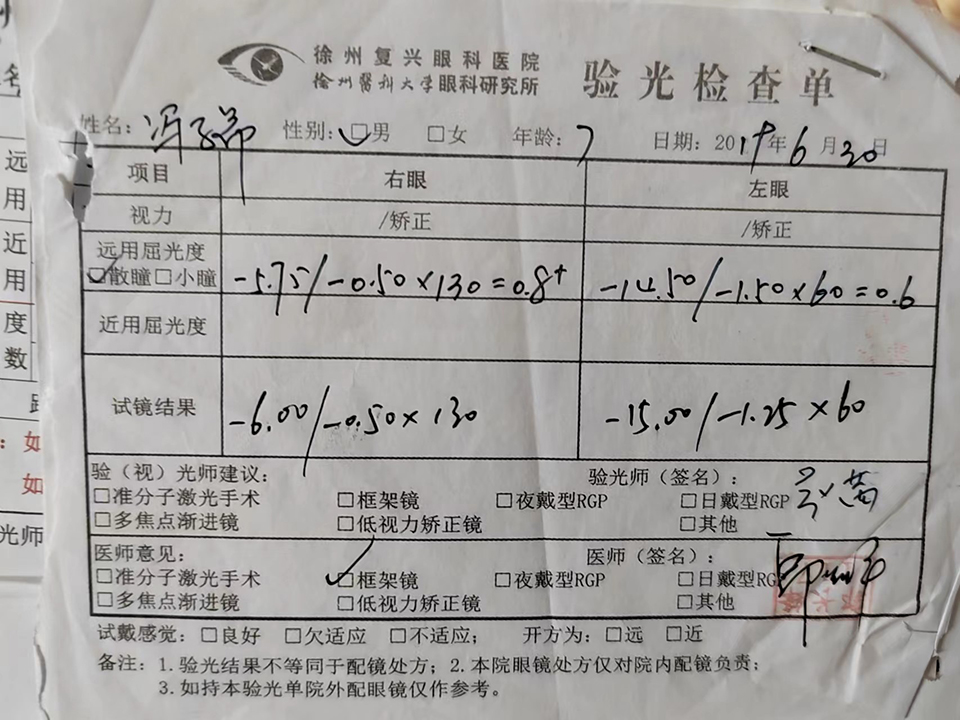 徐州复兴眼科医院
徐州醫科大学眼科研究所
验光检查单
姓名: 冯子 性别: □男 □女 年龄: 7 日期: 2019年6月30日
项目 右眼 左眼
视力 /矫正 /矫正
远用屈光度
□散瞳□小瞳 -5.75/-0.50×130=0.8+ -14.50/-1.50×60=0.6
近用屈光度
试镜结果 -6.00/-0.50×130 -15.00/-1.25×60
验（视）光师建议: 验光师（签名）:
□准分子激光手术 □框架镜 □夜戴型RGP □日戴型RGP
□多焦点渐进镜 □低视力矫正镜 □其他
医师意见: 医师（签名）:
□准分子激光手术 □框架镜 □夜戴型RGP □日戴型RG
□多焦点渐进镜 □低视力矫正镜 □其他
试戴感觉: □良好 □欠适应 □不适应; 开方为: □远 □近
备注: 1.验光结果不等同于配镜处方; 2.本院眼镜处方仅对院内配镜负责;
3.如持本验光单院外配眼镜仅作参考。
名
远
用
近
用
度
数
: 如
如
光师